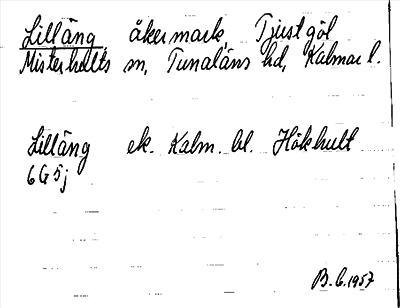 Lilläng åkermark, Tjustgöl
Misterhults sn, Tunaläns hd, Kalmar l.
Lilläng ek. Kalm. bl. Hökhult
6G5j
B.G.1957